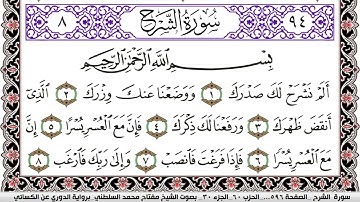 ٩٤ سُورَةُ الشَّرْحِ ٨
بِسْمِ اللَّهِ الرَّحْمَٰنِ الرَّحِيمِ
أَلَمْ نَشْرَحْ لَكَ صَدْرَكَ ١ وَوَضَعْنَا عَنكَ وِزْرَكَ ٢ الَّذِي
أَنقَضَ ظَهْرَكَ ٣ وَرَفَعْنَا لَكَ ذِكْرَكَ ٤ فَإِنَّ مَعَ الْعُسْرِ يُسْرًا ٥ إِنَّ
مَعَ الْعُسْرِ يُسْرًا ٦ فَإِذَا فَرَغْتَ فَانصَبْ ٧ وَإِلَىٰ رَبِّكَ فَارْغَب ٨
سورة الشرح الصفحة ٥٩٦ ... الحزب ٦٠ الجزء ٣٠ . بصوت الشيخ مفتاح محمد السلطني برواية الدوري عن الكسائي